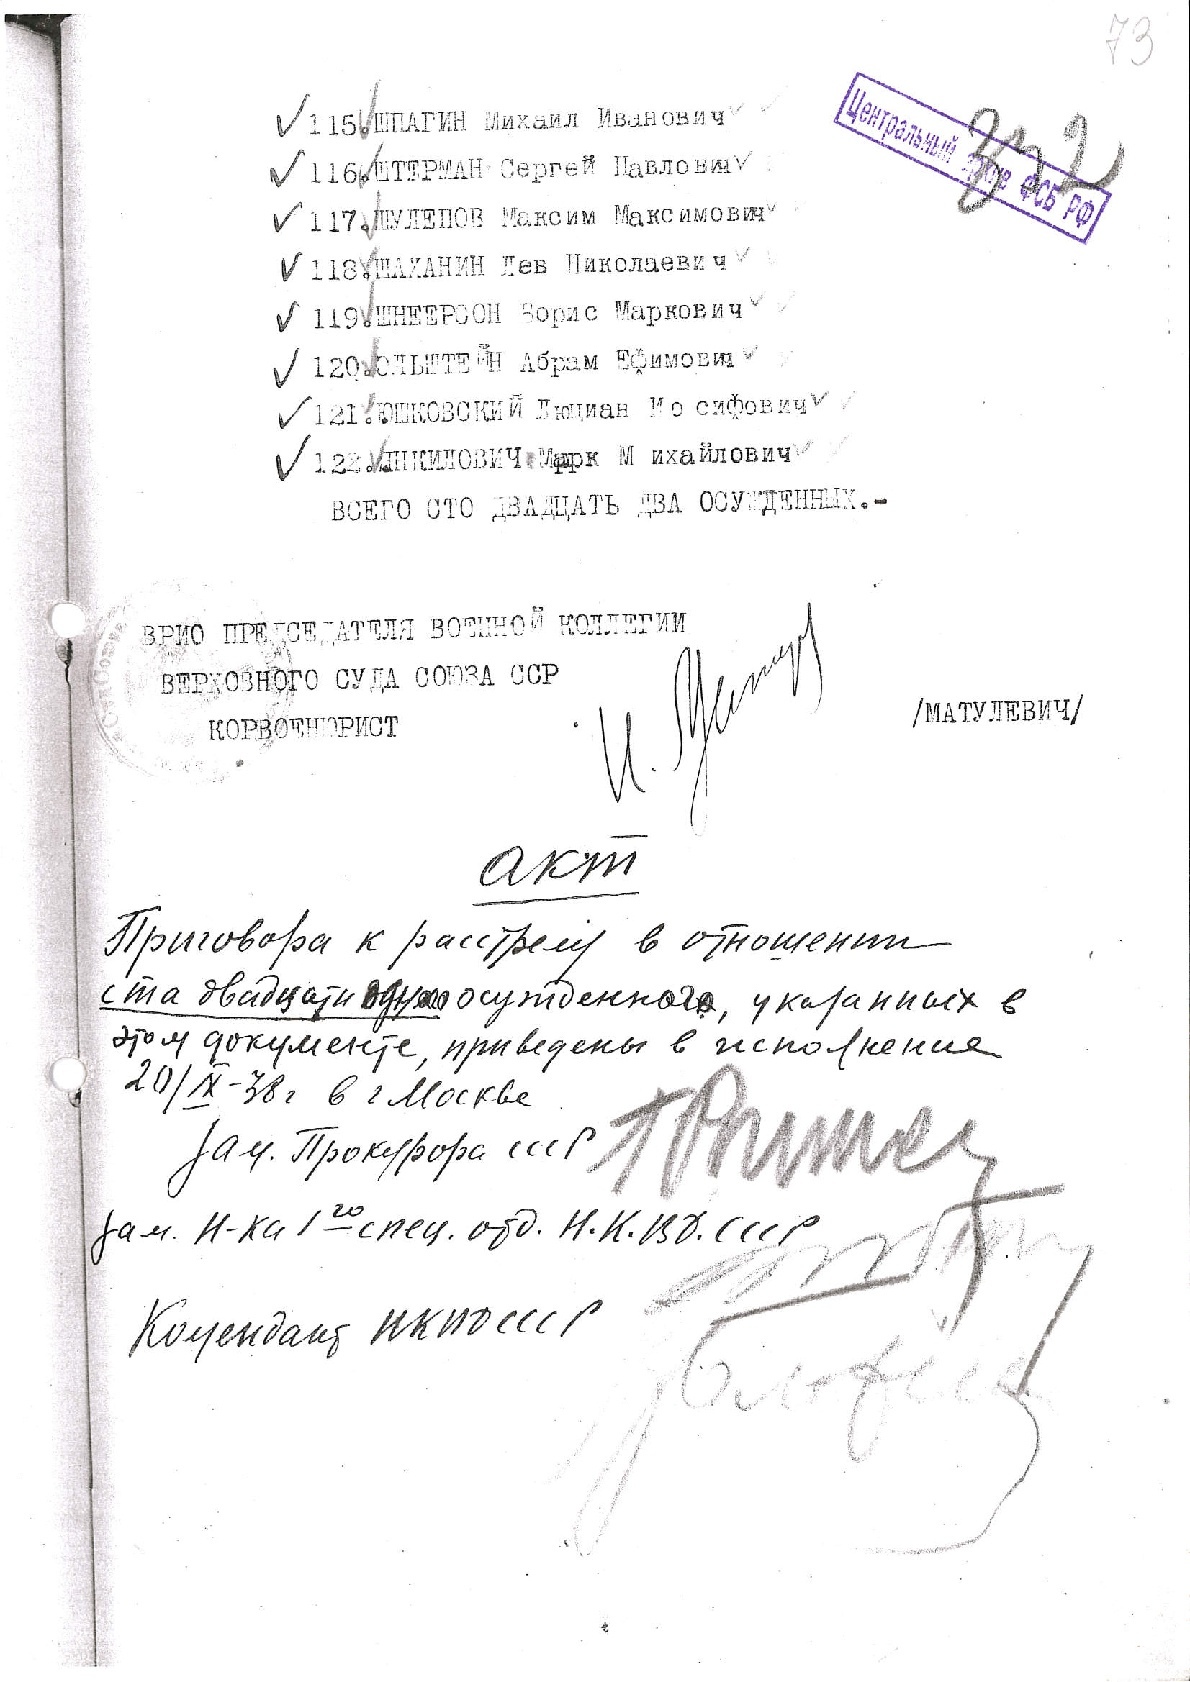 73
Центральный архив ФСБ РФ
332
115.ШПАГИН Михаил Иванович
116.ШТЕРМАН Сергей Павлович
117.ШУЛЕПОВ Максим Максимович
118.ШАХАНИН Лев Николаевич
119.ШНЕЕРСОН Борис Маркович
120.ЭЛЬШТЕЙН Абрам Ефимович
121.ЮШКОВСКИЙ Люциан Иосифович
122. Марк Михайлович
ВСЕГО СТО ДВАДЦАТЬ ДВА ОСУЖДЕННЫХ.-
ВРИО ПРЕДСЕДАТЕЛЯ ВОЕННОЙ КОЛЛЕГИИ
ВЕРХОВНОГО СУДА СОЮЗА ССР
КОРВОЕНЮРИСТ
/МАТУЛЕВИЧ/
Акт
Приговора к расстрелу в отношении
ста двадцати одного осужденного, указанных в
этом документе, приведены в исполнение
20/IX-38г в г Москве
Зам. Прокурора СССР
Зам. Н-ка 1го спец. отд. Н.К.В.Д. СССР
Комендант НКВД СССР